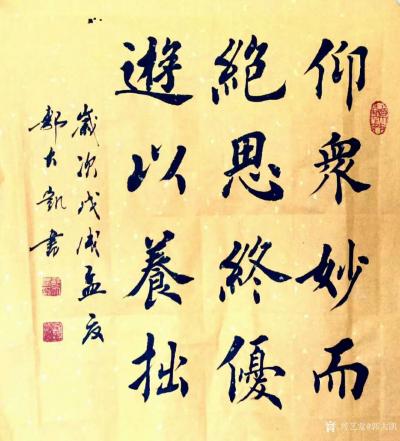 仰衆妙而
絶思終優
遊以養拙
歲次戊戌孟夏
郭大凱書